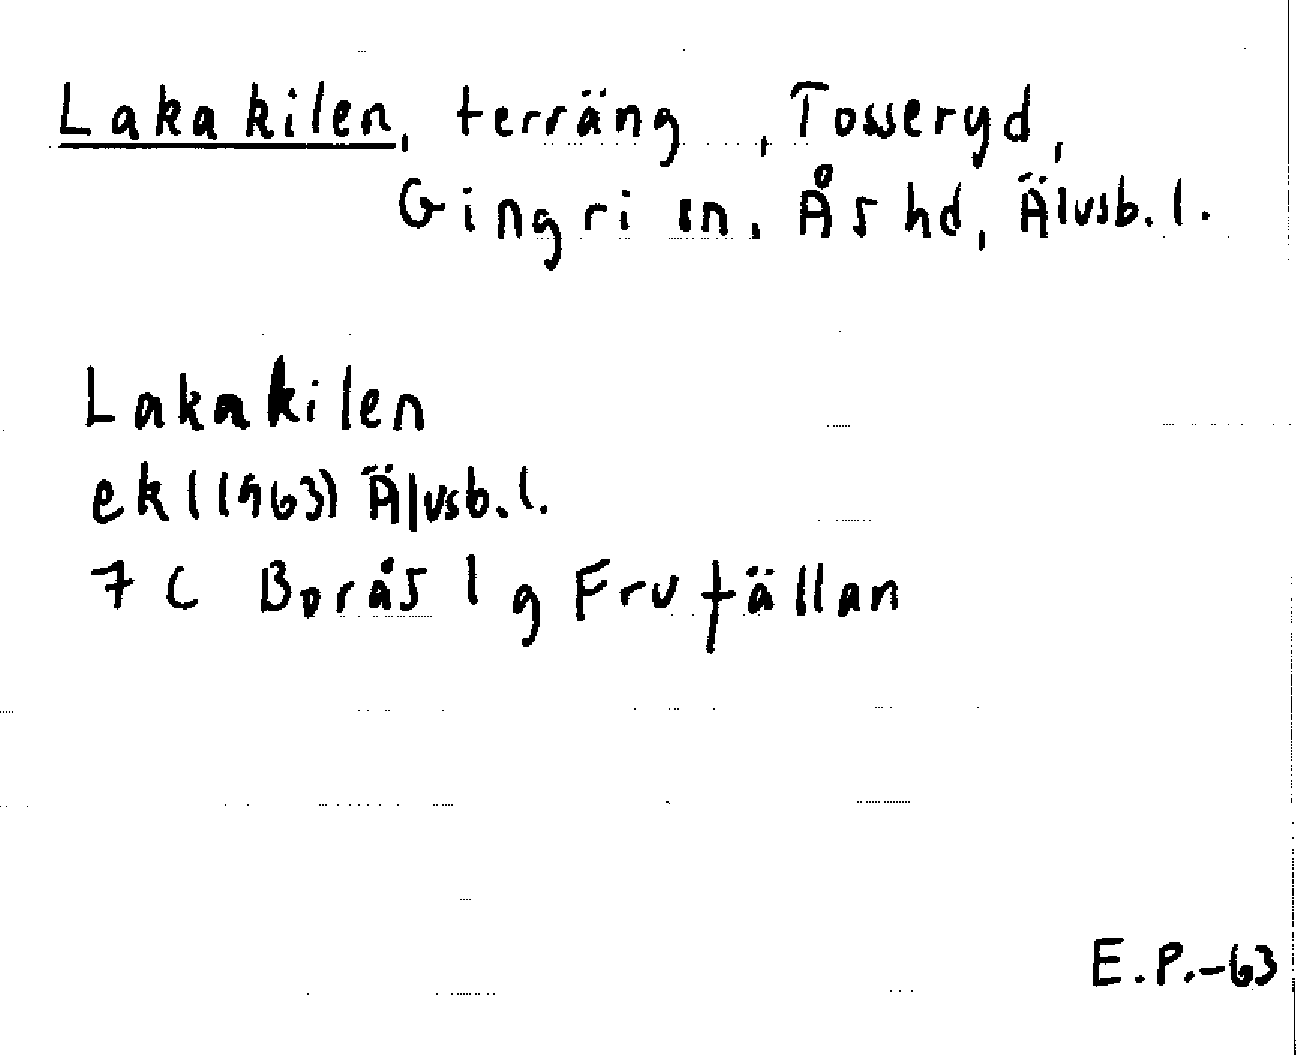 Lakakilen, terräng, Tosseryd,
Gingri sn. Ås hd, Älvsb. l.
Lakakilen
ek 1 (1963) Älvsb. l.
7 C Borås 1 g Frufällan
E.P.-63